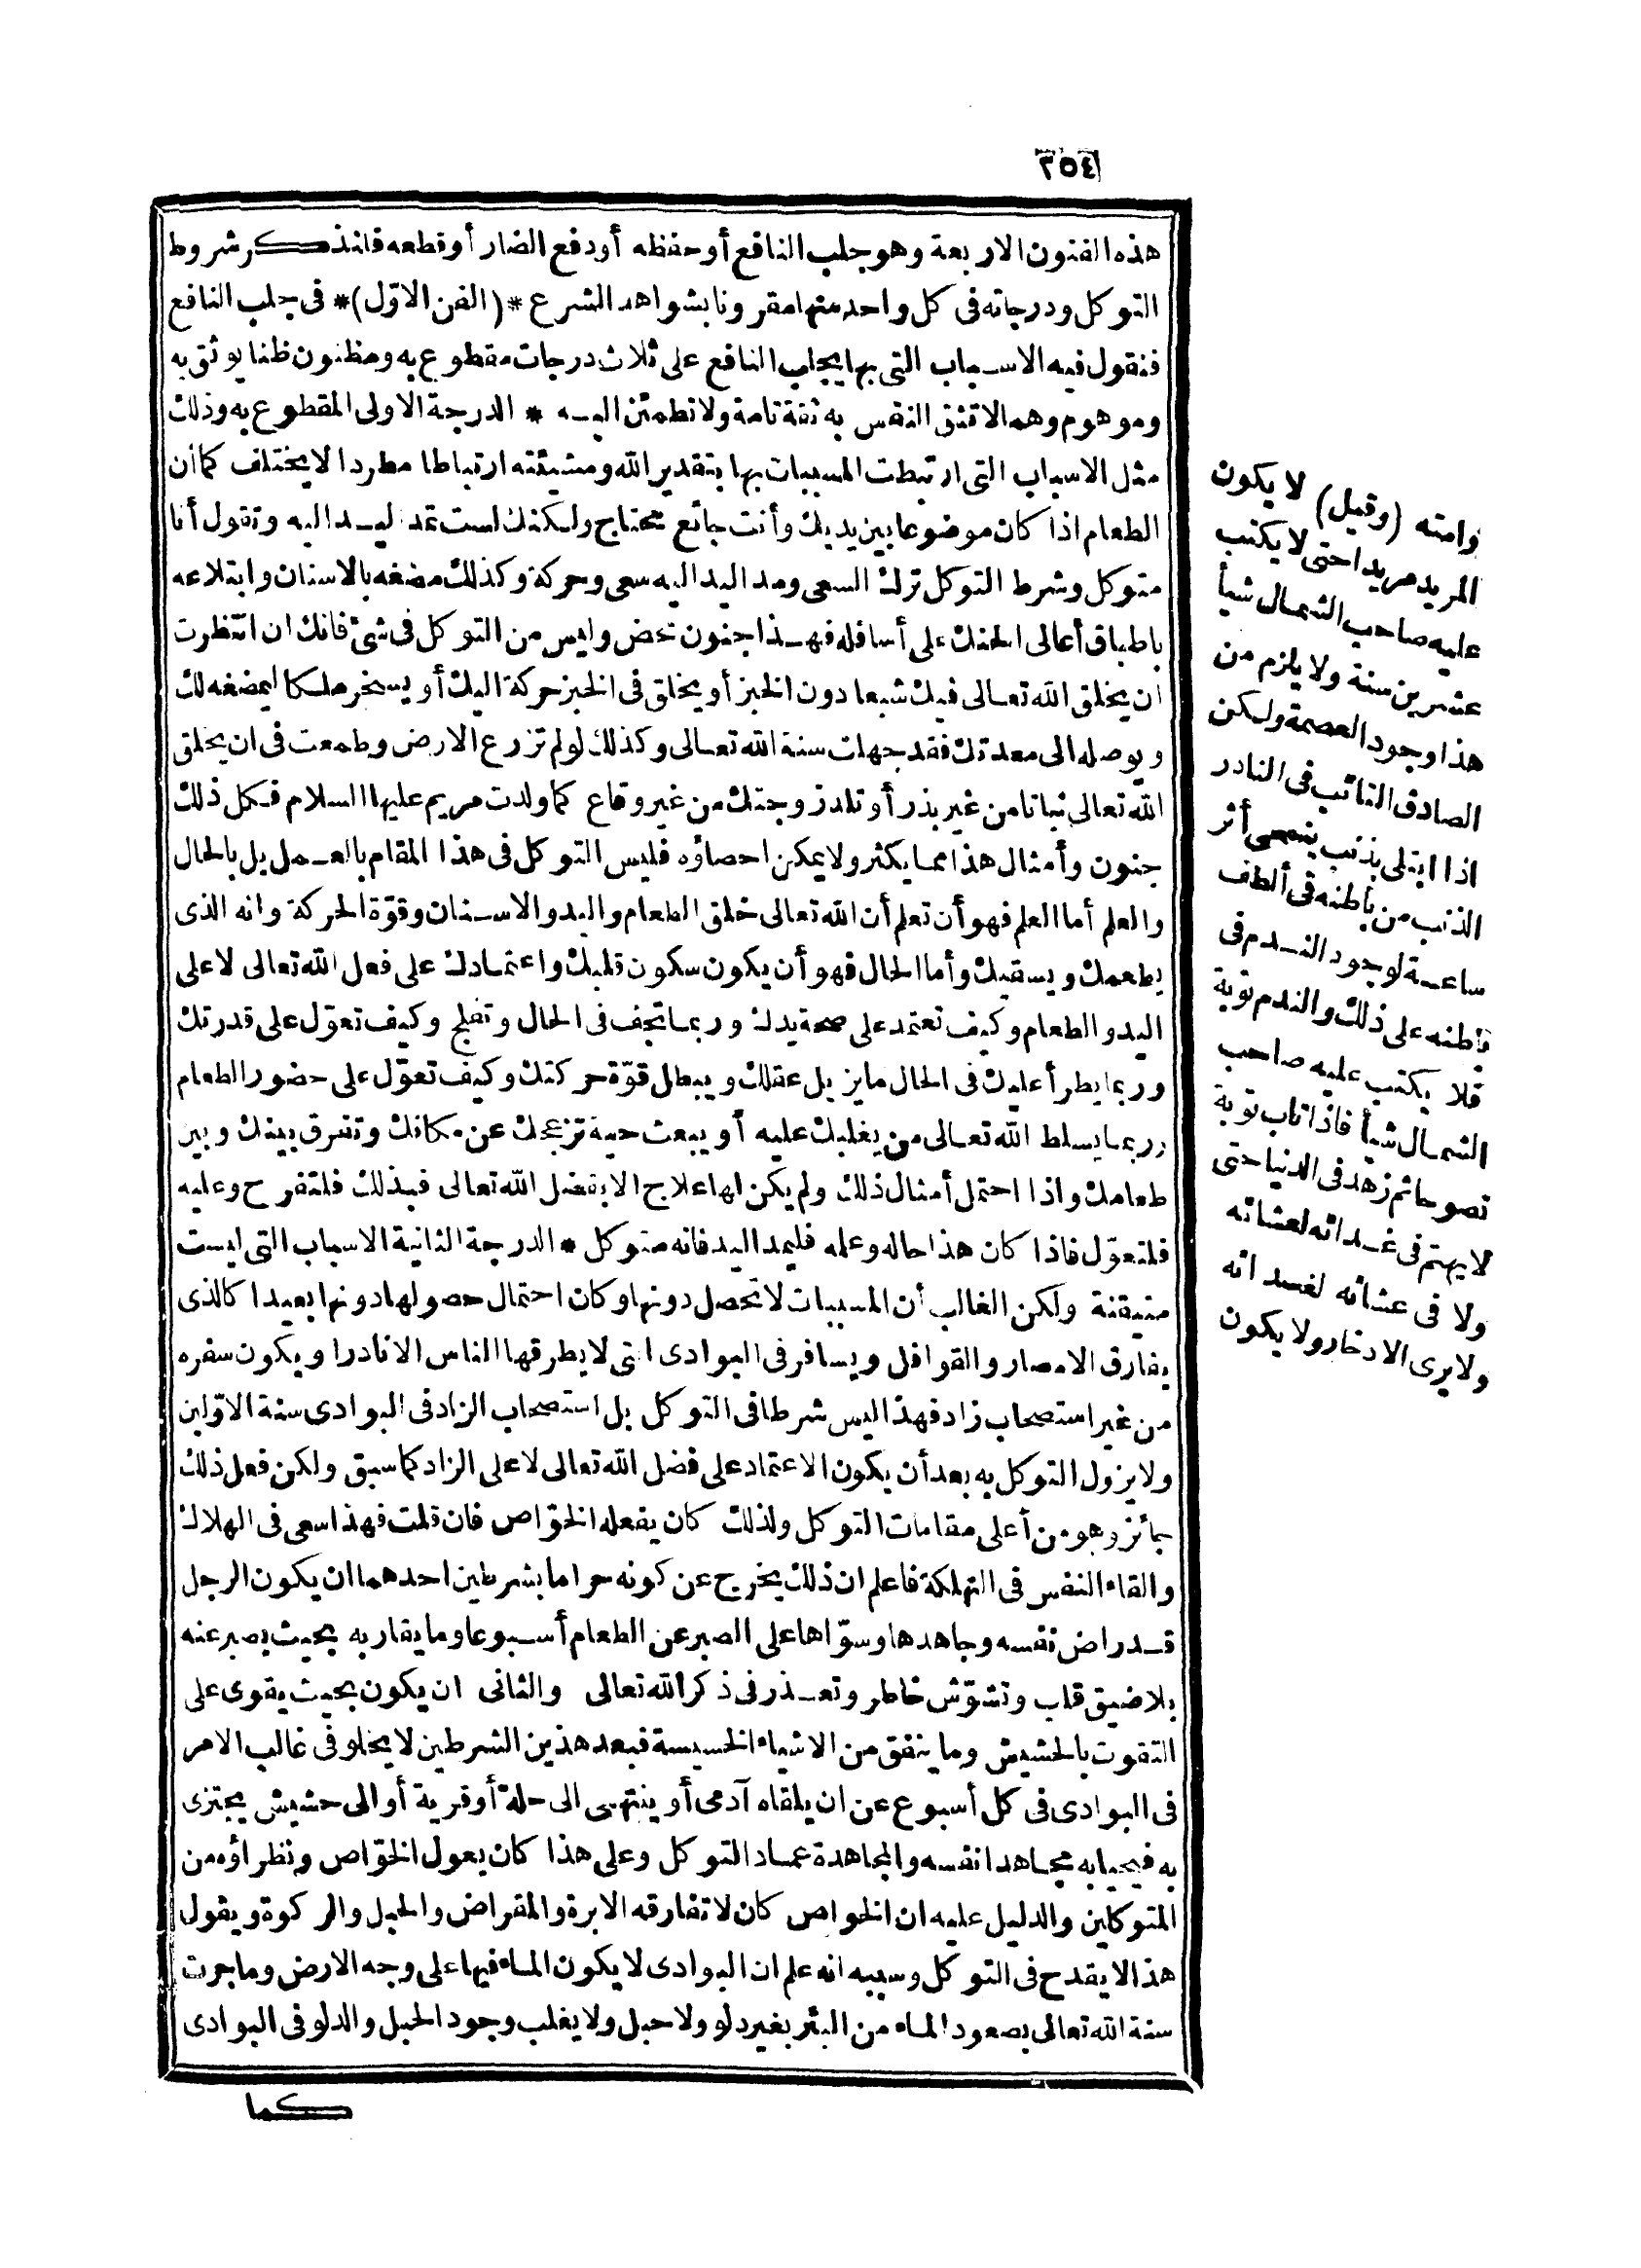 ٢٥٤
هذه الفنون الاربعة وهو جلب النافع أو حفظه أو دفع الضار أو قطعه فلنذكر شروط
التوكل ودرجاته فى كل واحد منها مقرونا بشواهد الشرع * (الفن الاوّل) * فى جلب النافع
فنقول فيه الاسباب التى بها يجلب النافع على ثلاث درجات مقطوع به ومظنون ظنا يوثق به
وموهوم وهما لا تثق النفس به ثقة تامة ولا تطمئن اليه * الدرجة الاولى المقطوع به وذلك
مثل الاسباب التى ارتبطت المسببات بها بتقدير الله ومشيئته ارتباطا مطردا لا يختلف كما أن
الطعام اذا كان موضوعا بين يديك وأنت جائع محتاج ولكنك لست تمد اليد اليه وتقول أنا
متوكل وشرط التوكل ترك السعى ومد اليد اليه سعى وحركة وكذلك مضغه بالاسنان وابتلاعه
باطباق أعالى الحنك على أسافله فهذا جنون محض وليس من التوكل فى شئ فانك ان انتظرت
ان يخلق الله تعالى فيك شبعا دون الخبز أو يخلق فى الخبز حركة اليك أو يسخر ملكا ليمضغه لك
ويوصله الى معدتك فقد جهلت سنة الله تعالى وكذلك لو لم تزرع الارض وطمعت فى ان يخلق
الله تعالى نباتا من غير بذر أو تلد زوجتك من غير وقاع كما ولدت مريم عليها السلام فكل ذلك
جنون وأمثال هذا مما يكثر ولا يمكن احصاؤه فليس التوكل فى هذا المقام بالعمل بل بالحال
والعلم أما العلم فهو أن تعلم أن الله تعالى خلق الطعام واليد والاسنان وقوّة الحركة وانه الذى
يطعمك ويسقيك وأما الحال فهو أن يكون سكون قلبك واعتمادك على فعل الله تعالى لا على
اليد والطعام وكيف تعتمد على صحة يدك وربما تجف فى الحال وتفلج وكيف تعوّل على قدرتك
وربما يطرأ عليك فى الحال ما يزيل عقلك ويبطل قوّة حركتك وكيف تعوّل على حضور الطعام
وربما يسلط الله تعالى من يغلبك عليه أو يبعث حية تزعجك عن مكانك وتفرق بينك وبين
طعامك واذا احتمل أمثال ذلك ولم يكن لها علاج الا بفضل الله تعالى فبذلك فلتفرح وعليه
فلتعوّل فاذا كان هذا حاله وعلمه فليمد اليد فانه متوكل * الدرجة الثانية الاسباب التى ليست
متيقنة ولكن الغالب أن المسببات لا تحصل دونها وكان احتمال حصولها دونها بعيدا كالذى
يفارق الامصار والقوافل ويسافر فى البوادى التى لا يطرقها الناس الا نادرا ويكون سفره
من غير استصحاب زاد فهذا ليس شرطا فى التوكل بل استصحاب الزاد فى البوادى سنة الاوّلين
ولا يزول التوكل به بعد أن يكون الاعتماد على فضل الله تعالى لا على الزاد كما سبق ولكن فعل ذلك
جائز وهو من أعلى مقامات التوكل ولذلك كان يفعله الخوّاص فان قلت فهذا سعى فى الهلاك
والقاء النفس فى التهلكة فاعلم ان ذلك يخرج عن كونه حراما بشرطين احدهما ان يكون الرجل
قد راض نفسه وجاهدها وسوّاها على الصبر عن الطعام أسبوعا وما يقاربه بحيث يصبر عنه
بلا ضيق قلب وتشوّش خاطر وتعذر فى ذكر الله تعالى والثانى ان يكون بحيث يقوى على
التقوت بالحشيش وما يتفق من الاشياء الخسيسة فبعد هذين الشرطين لا يخلو فى غالب الامر
فى البوادى فى كل أسبوع عن ان يلقاه آدمى أو ينتهى الى حلة أو قرية أو الى حشيش يجتزى
به فيحيا به مجاهدا نفسه والمجاهدة عماد التوكل وعلى هذا كان يعول الخوّاص ونظراؤه من
المتوكلين والدليل عليه ان الخواص كان لا تفارقه الابرة والمقراض والحبل والركوة ويقول
هذا لا يقدح فى التوكل وسببه انه علم ان البوادى لا يكون الماء فيها على وجه الارض وما جرت
سنة الله تعالى بصعود الماء من البئر بغير دلو ولا حبل ولا يغلب وجود الحبل والدلو فى البوادى
كما
وامته (وقيل) لا يكون
المريد مريدا حتى لا يكتب
عليه صاحب الشمال شيأ
عشرين سنة ولا يلزم من
هذا وجود العصمة ولكن
الصادق التائب فى النادر
اذا ابتلى بذنب ينمحى أثر
الذنب من باطنه فى ألطف
ساعة لوجود الندم فى
باطنه على ذلك والندم توبة
فلا يكتب عليه صاحب
الشمال شيأ فاذا تاب توبة
نصوحا ثم زهد فى الدنيا حتى
لا يهتم فى غدائه لعشائه
ولا فى عشائه لغدائه
ولا يرى الادخار ولا يكون